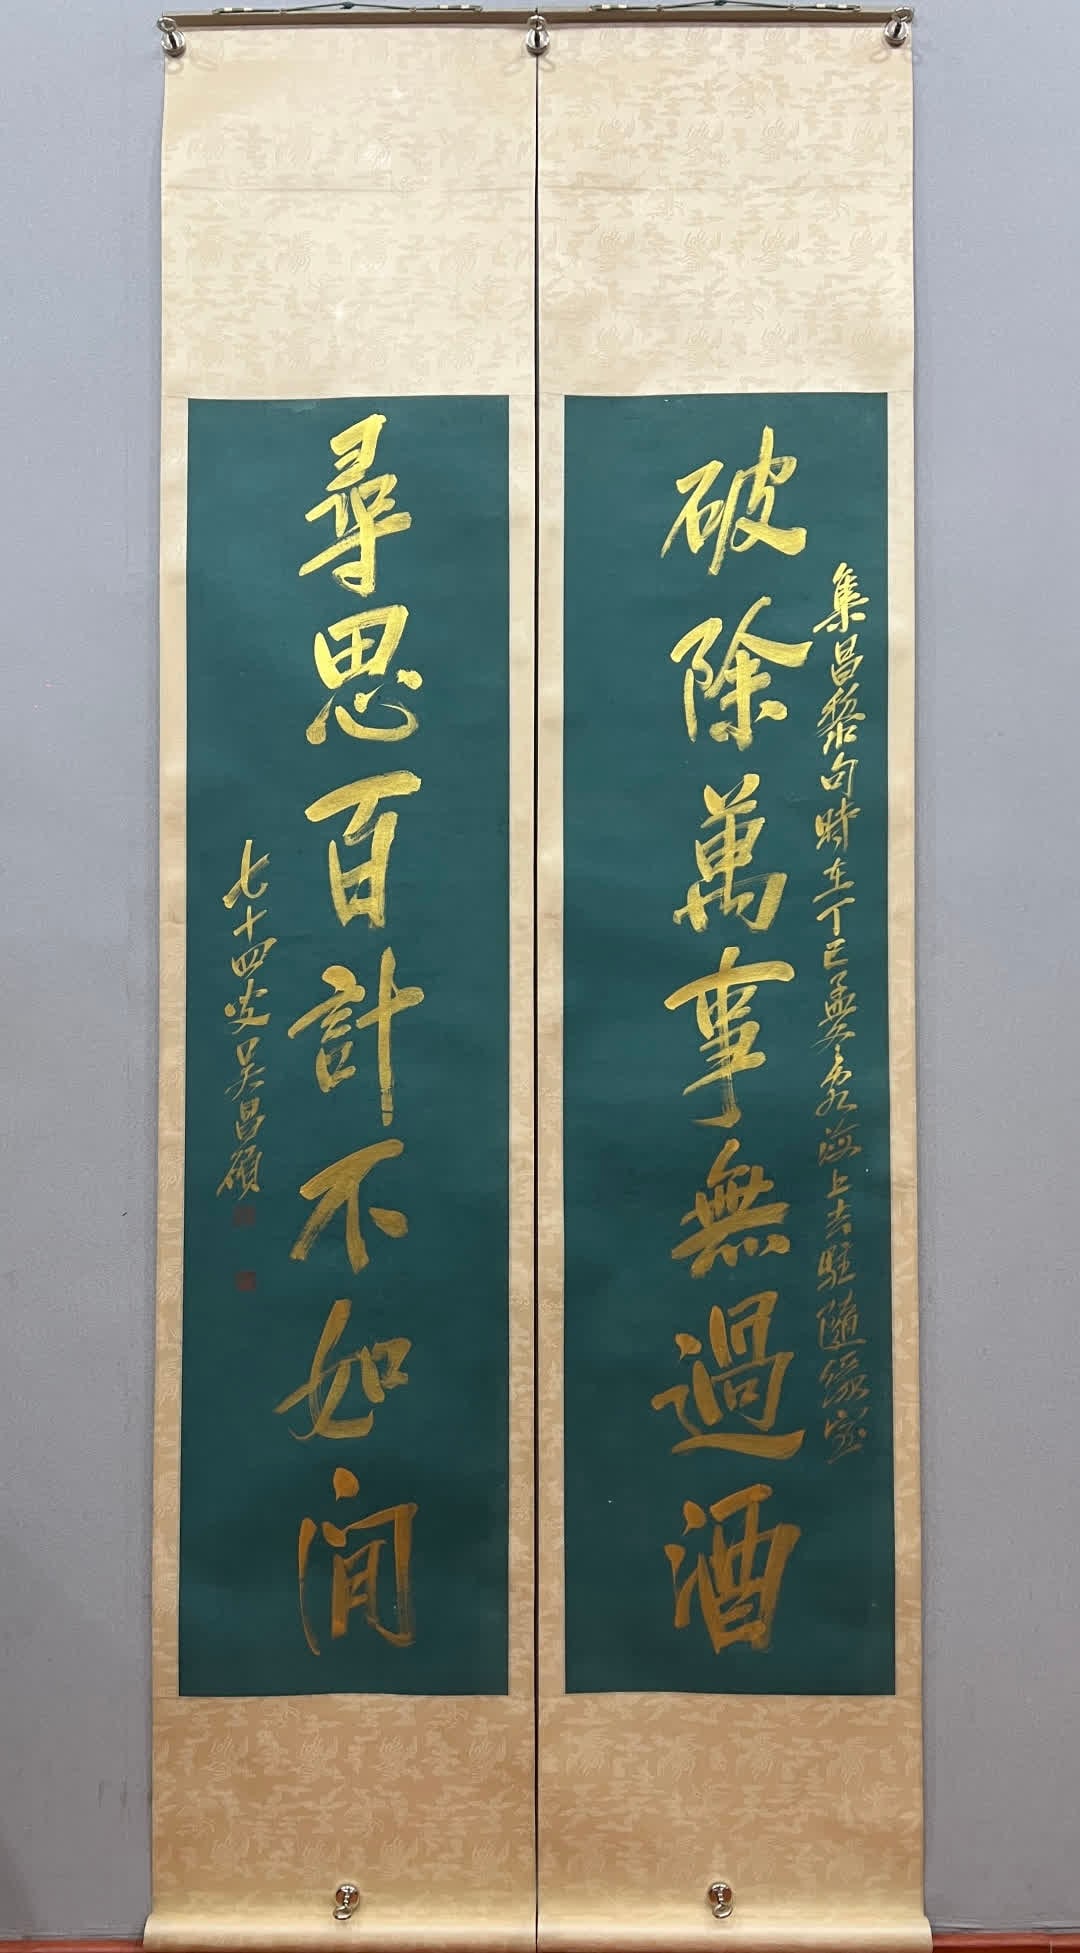 破除萬事無過酒
集昌黎句時在丁巳孟冬客海上去駐隨緣室
尋思百計不如閒
七十四叟吳昌碩